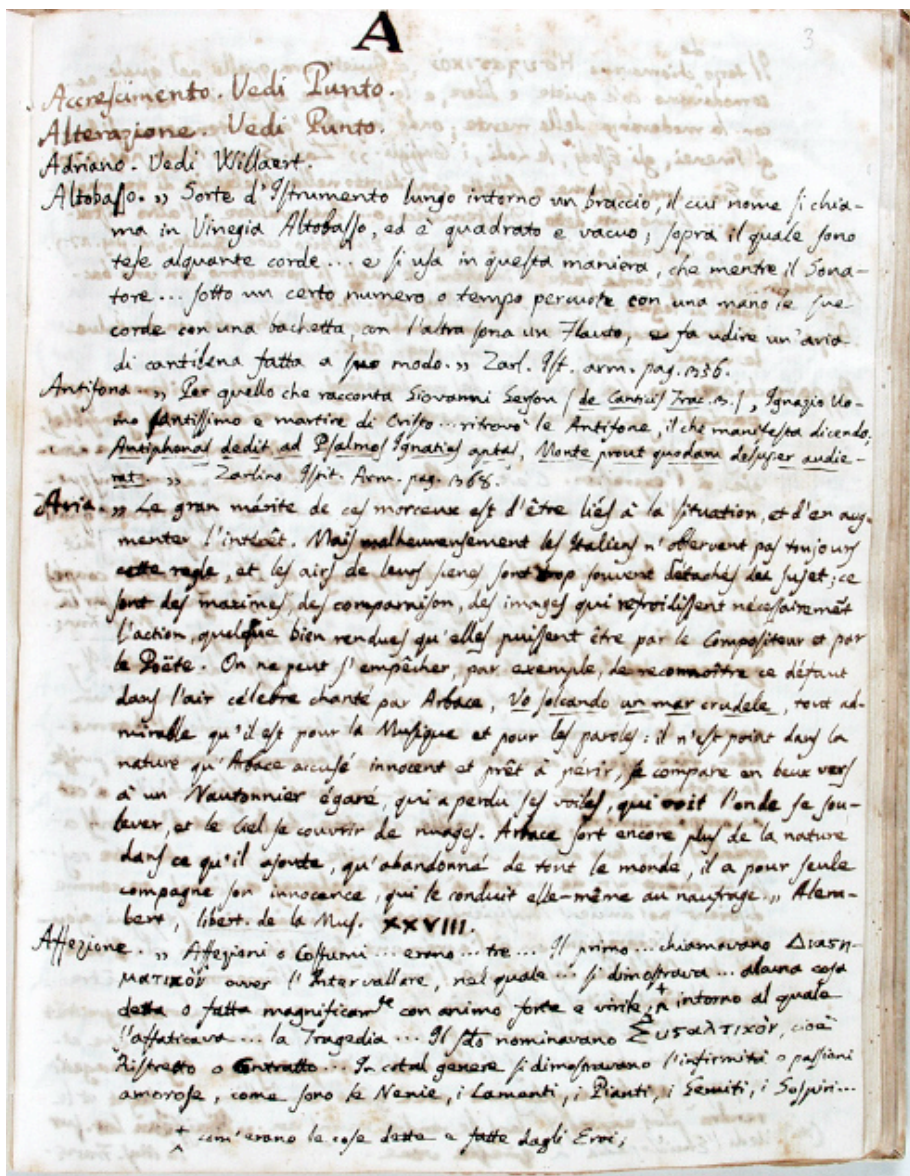 A
3
Accrescimento. Vedi Punto.
Alterazione. Vedi Punto.
Adriano. Vedi Willaert.
Altobasso. ,, Sorte d'Istrumento lungo intorno un braccio, il cui nome si chia-
ma in Vinegia Altobasso, ed è quadrato e vacuo; sopra il quale sono
tese alquante corde... e si usa in questa maniera, che mentre il Sona-
tore... sotto un certo numero o tempo percuote con una mano le sue
corde con una bachetta, con l'altra sona un Flauto, e fa udire un'aria
di cantilena fatta a suo modo. ,, Zarl. Ist. arm. pag. 1336.
Antifona. ,, Per quello che racconta Giovanni Gerson (de Canticis Trac. 13.), Ignazio Uo-
mo santissimo e martire di Cristo... ritrovò le Antifone, il che manifesta dicendo;
Antiphonas dedit ad Psalmos Ignatius aptas, Monte prout quodam desuper audie-
rat. ,, Zarlino Istit. Arm. pag. 1368.
Aria. ,, Le gran mérite de ces morceux est d'être liés à la situation, et d'en aug-
menter l'intérêt. Mais malheureusement les Italiens n'observent pas toujours
cette regle, et les airs de leurs scenes sont trop souvent détachés du sujet; ce
sont des maximes, des comparaison, des images qui refroidissent nécessairemẽt
l'action, quelque bien rendues qu'elles puissent être par le Compositeur et par
le Poëte. On ne peut s'empêcher, par exemple, de reconnoître ce défaut
dans l'air célebre chanté par Arbace, Vo solcando un mar crudele, tout ad-
mirable qu'il est pour la Musique et pour les paroles: il n'est point dans la
nature qu'Arbace accusé innocent et prêt à périr, se compare en beux vers
à un Nautonnier égaré, qui a perdu ses voiles, qui voit l'onde se sou-
lever, et le Ciel se couvrir de nuages. Arbace sort encore plus de la nature
dans ce qu'il ajoute, qu'abandonné de tout le monde, il a pour seule
compagne son innocence, qui le conduit elle-même au naufrage. ,, Alem-
bert, libert. de la Mus. XXVIII.
Affezione. ,, Affezioni o Costumi... erano... tre... Il primo... chiamavano Διαστη-
ματικὸν over l'Intervallare, nel quale... si dimostrava... alcuna cosa
detta o fatta magnificam.te con animo forte e virile, + intorno al quale
s'affaticava... la Tragedia... Il sdo nominavano Συσταλτικὸν, cioè
Ristretto o Contratto... In cotal genere si dimostravano l'infirmità o passioni
amorose, come sono le Nenie, i Lamenti, i Pianti, i Gemiti, i Sospiri...
+ com'erano le cose dette e fatte dagli Eroi;